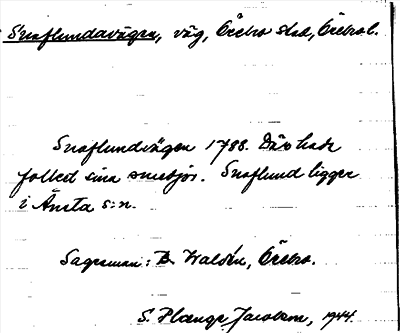 Snaflundavägen, väg, Örebro stad, Örebro l.
Snaflundvägen 1788. Där hade
folket sina smedjor. Snaflund ligger
i Ånsta s:n.
Sagesman: B. Waldén, Örebro.
S. Hange Jacobson, 1944.